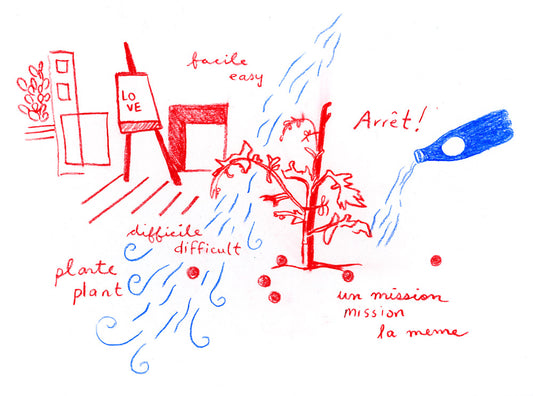 facile
easy
LO
VE
Arrêt!
difficile
difficult
plante
plant
un mission
mission
la meme